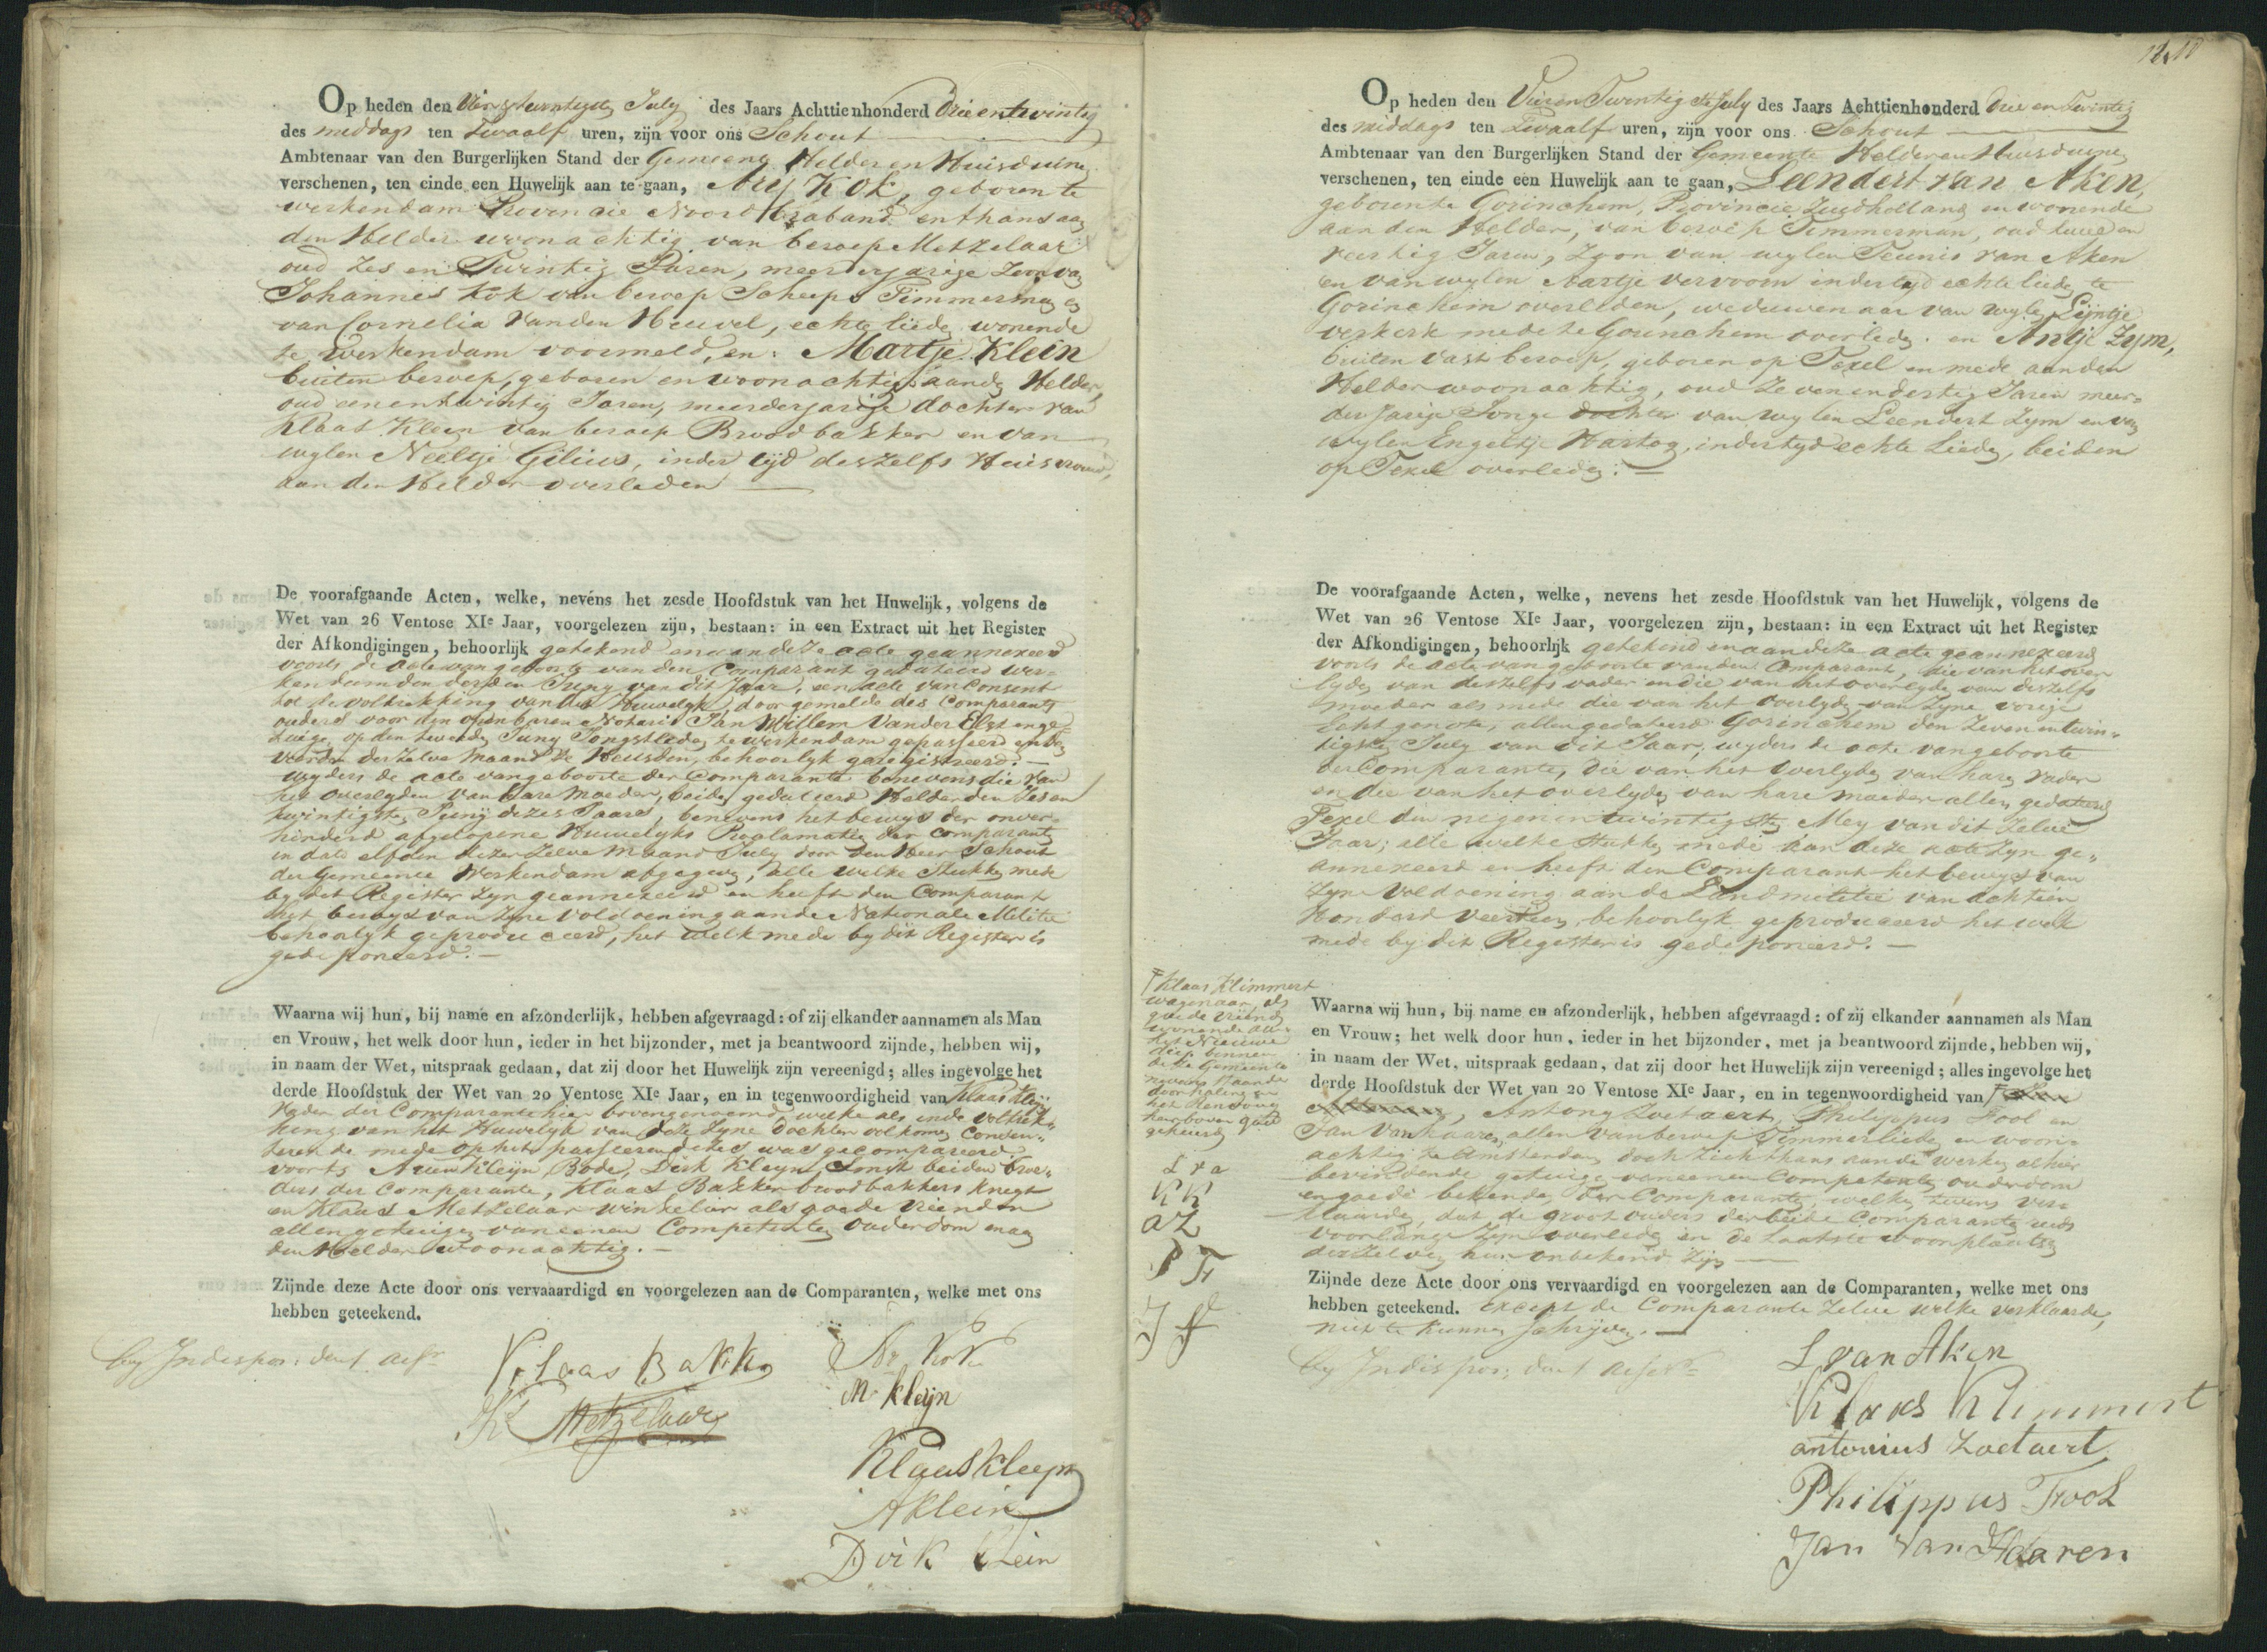 Op heden den Vier &twintigste July des Jaars Achttienhonderd Drie entwintig
des middags ten Twaalf uren, zijn voor ons Schout
Ambtenaar van den Burgerlijken Stand der Gemeente Helder en Huisduinen
verschenen, ten einde een Huwelijk aan te gaan, Arij Kok, geboren te
werkendam Provincie Noord Braband en thans aan
den Helder woonachtig van beroep Metzelaar
oud Zes en Twintig Jaren, meerderjarige Zoon van
Johannes Kok van beroep Scheeps Timmerman en
van Cornelia Van den Heuvel, echte lieden wonende
te Werkendam voormeld, en: Martje Klein
buiten beroep, geboren en woonachtig aanden Helder,
oud eenentwintig Jaren, meerderjarige dochter van
Klaas Kleyn van beroep Broodbakker en van
wylen Neeltje Gilius, inder tijd deszelfs Huisvrouw,
aan den Helder overleden
De voorafgaande Acten, welke, nevéns het zesde Hoofdstuk van het Huwelijk, volgens de
Wet van 26 Ventose XIe Jaar, voorgelezen zijn, bestaan: in een Extract uit het Register
der Afkondigingen, behoorlijk getekend en aan deze acte geannexeerd
voorts de acte van geboorte van den Comparant gedateerd Wer-
kendam den derden Juny van dit Jaar, een acte van Consent
tot de voltrekking van dit Huwelyk, door gemelde des Comparants
ouders voor den openbaren Notaris Jan Willem Vander Elst en ge-
tuigen op den tweeden Juny Jongstleden te werkendam gepasseerd en den
vierden derzelve maand te Heusden, behoorlyk geregistreerd. -
wyders de acte van geboorte der Comparante benevens die van
het overlyden van hare Moeder, beiden gedateerd Helder den Zes en
twintigste Juny dezes Jaars, benevens het bewys der onver-
hinderd afgelopene Huwelyks Proclamatien der Comparanten
in dato elfden dezer zelve maand July door den Heer Schout
der Gemeente Werkendam afgegeven, alle welke Stukken mede
by dit Register zyn geannexeerd en heeft den Comparant
het bewys van zyne voldoening aan de Nationale Militie
behoorlyk geproduceerd, het welk mede by dit Register is
gedeponeerd. -
Waarna wij hun, bij name en afzonderlijk, hebben afgevraagd: of zij elkander aannamen als Man
en Vrouw, het welk door hun, ieder in het bijzonder, met ja beantwoord zijnde, hebben wij,
in naam der Wet, uitspraak gedaan, dat zij door het Huwelijk zijn vereenigd; alles ingevolge het
derde Hoofdstuk der Wet van 20 Ventose XIe Jaar, en in tegenwoordigheid van Klaas Kleijn
Vader der Comparante hier bovengenoemd, welke als inde voltrek-
king van het Huwelyk van deze Zyne dochter volkomen Consen-
terende mede op het passeren dezes was gecompareerd
voorts Arien Kleijn, Bode, Dirk Kleyn, Smit beiden broe-
ders der Comparante, Klaas Bakker broodbakkers knegt
en Klaas Metzelaar winkelier als goede vrienden
allen getuigen van eenen Competenten ouderdom en aan
den Helder woonachtig. -
Zijnde deze Acte door ons vervaaardigd en voorgelezen aan de Comparanten, welke met ons
hebben geteekend.
by Indispos: den 1 assr
Klaas Bakker
Kl Metzelaar
Ar Kok
M kleijn
Klaas Kleyn
A Klein
Dirk Klein
Op heden den Vieren Twentigste July des Jaars Achttienhonderd Drie en Twintig
des middags ten Twaalf uren, zijn voor ons Schout
Ambtenaar van den Burgerlijken Stand der Gemeente Helder en Huisduinen
verschenen, ten einde een Huwelijk aan te gaan, Leendert van Aken,
geboren te Gorinchem, Provincie Zuydholland en wonende
aan den Helder, van beroep Timmerman, oud twee en
veertig Jaren, Zoon van wylen Teunis van Aken
en van wylen Aartje vervoorn indertyd echte lieden te
Gorinchem overleden, weduwenaar van wylen Lijntje
verkerk mede te Gorinchem overleden. en Antje Zym,
buiten vast beroep, geboren op Texel en mede aan den
Helder woonachtig, oud Zevenendertig Jaren meer-
derjarige Jonge dochter van wylen Leendert Zym en van
wylen Engeltje Hartog, indertyd echte Lieden, beiden
op Texel overleden: -
De voorafgaande Acten, welke, nevens het zesde Hoofdstuk van het Huwelijk, volgens de
Wet van 26 Ventose XIe Jaar, voorgelezen zijn, bestaan: in een Extract uit het Register
der Afkondigingen, behoorlijk getekend en aan deze acte geannexeerd
voorts de acte van geboorte van den Comparant, die van het over
lyden van deszelfs vader en die van het overlyden van deszelfs
moeder als mede die van het overlyden van Zyne vorige
Echtgenote, allen gedateerd Gorinchem den Zeven entwin-
tigsten July van dit Jaar, wyders de acte van geboorte
der Comparante, die van het overlyden van haren vader
en die van het overlyden van hare moeder allen gedateerd
Texel den negenentwintigsten Mey van dit Zelve
Jaar; alle welke stukken mede aan deze acte zyn ge-
annexeerd en heeft den Comparant het bewys van
Zyne voldoening aan de Landmilitie van achtien
Honderd Veertien, behoorlyk geproduceerd het welk
mede by dit Register is gedeponeerd. -
Waarna wij hun, bij name en afzonderlijk, hebben afgevraagd: of zij elkander aannamen als Man
en Vrouw; het welk door hun, ieder in het bijzonder, met ja beantwoord zijnde, hebben wij,
in naam der Wet, uitspraak gedaan, dat zij door het Huwelijk zijn vereenigd; alles ingevolge het
derde Hoofdstuk der Wet van 20 Ventose XIe Jaar, en in tegenwoordigheid van
Antony Zoetaert, Philippus Tool en
Jan Van haaren, allen van beroep Timmerlieden en woon-
achtig te Amsterdam doch zich thans aan de werken alhier
bevindende getuigen van eenen Competenten ouderdom
en goede bekenden der Comparanten, welke tevens ver-
klaarden, dat de groot ouders der beide Comparanten reeds
voorlange Zyn overleden en de laatste woonplaatsen
derzelven hun onbekend Zyn
Zijnde deze Acte door ons vervaardigd en voorgelezen aan de Comparanten, welke met ons
hebben geteekend. Except de Comparante Zelve welke verklaarde,
niet te kunnen schrijven. -
by Indispos: den 1 assr
L van Aken
Klaas Klimmert
antonius Zoetaert
Philippus Trool
Jan Van Haaren
Klaas Klimmert
wagenaar, als
goede vriend
wonende aan
het Nieuwe
diep binnen
deze Gemeente
L v a
KK
a Z
P Tr